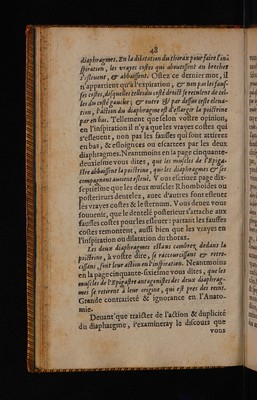 48
diaphragmes. En la dilatation du thorax pour faire l'inʃ
ſpiration, les vrayes coſtes qui aboutiſſent au brechet
s'eſleuent, & abbaiſſent. Oſtez ce dernier mot, il
n'appartient qu'à l'expiration, & non pas les fauſ-
ſes coſtes, deſquelles celles du coſté droict ſe reculent de cel-
les du coſté gauche; & outre & par deſſus ceſte eleua-
tion, l'action du diaphragme eſt d'eſlargir la poictrine
par en bas. Tellement que ſelon voſtre opinion,
en l'inſpiration il n'y a que les vrayes coſtes qui
s'eſleuent, non pas les fauſſes qui ſont attirees
en bas, & eſloignees ou eſcartees par les deux
diaphragmes. Neantmoins en la page cinquante-
deuxieſme vous dites, que les muſcles de l'Epiga-
ſtre abbaiſſent la poictrine, que les diaphragmes & ſes
compagnons auoient eſleué. Vous eſcriuez page dix-
ſeptieſme que les deux muſcles Rhomboides ou
poſterieurs dentelez, auec d'autres font eſleuer
les vrayes coſtes & le ſternum. Vous deuez vous
ſouuenir, que le dentelé poſterieur s'attache aux
fauſſes coſtes pour les eſleuer: partant les fauſſes
coſtes remontent, auſſi bien que les vrayes en
l'inſpiration ou dilatation du thorax.
Les deux diaphragmes eſtans cambrez dedans la
poictrine, à voſtre dire, ſe raccourciſſans & retre-
ciſſans, font leur action en l'inſpiration. Neantmoins
en la page cinquante-ſixieſme vous dites, que les
muſcles de l'Epigaſtre antagoniſtes des deux diaphrag-
mes ſe retirent à leur origine, qui eſt pres des reins.
Grande contrarieté & ignorance en l'Anato-
mie.
Deuant que traicter de l'action & duplicité
du diaphragme, i'examineray le diſcours que
vous